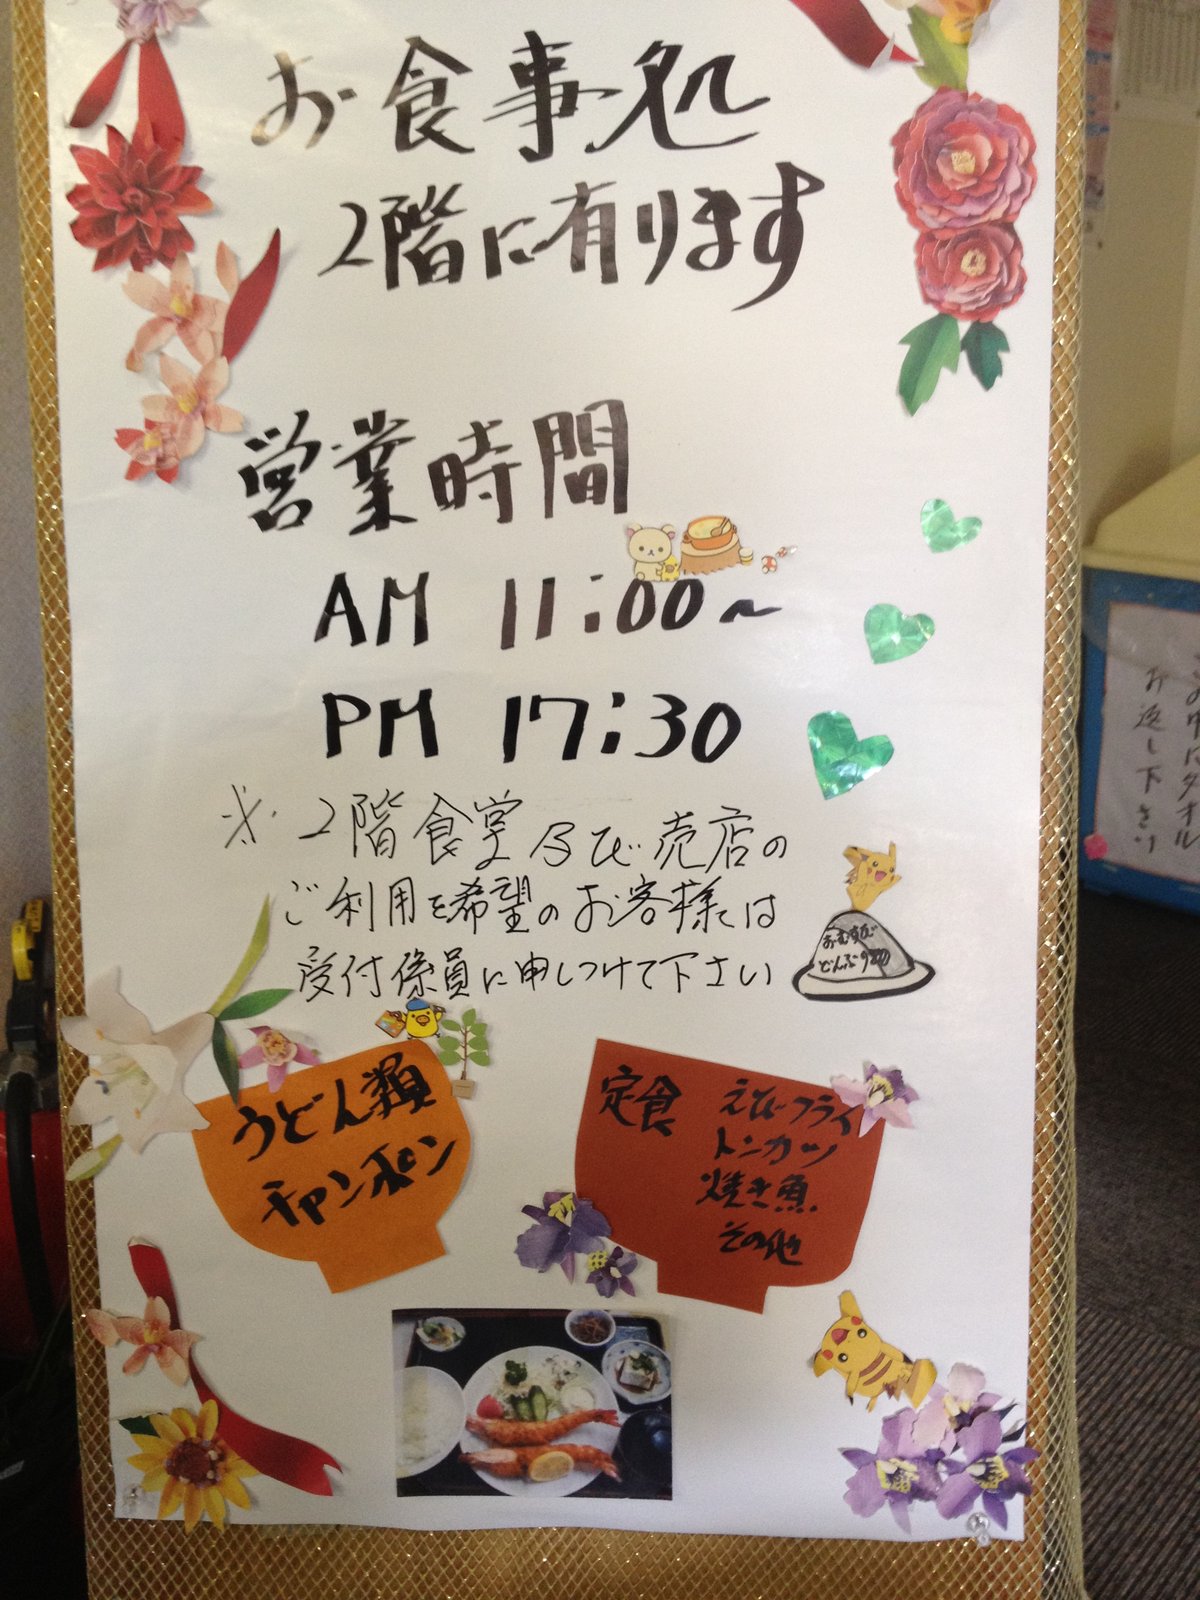 お食事処
2階に有ります
営業時間
AM 11:00~
PM 17:30
※.2階食堂及び売店の
ご利用を希望のお客様は
受付係員に申しつけて下さい
おむすび
どんぶり
うどん類
チャンポン
定食
えびフライ
トンカツ
焼き魚
その他
この中にタオル
お返し下さい